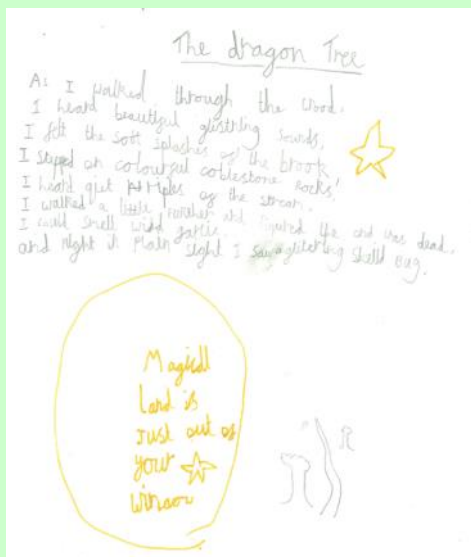 The dragon Tree
As I walked through the wood,
I heard beautiful glistring sounds,
I felt the soft splashes of the brook
I stepped on colourful coblestone rocks!
I heard qiet of the stream.
I walked a little further and figured life and was dead.
I could smell wild garlic
and right in plain sight I saw a glittering sheild bug.
Magicall
Land is
Just out of
your
winsow